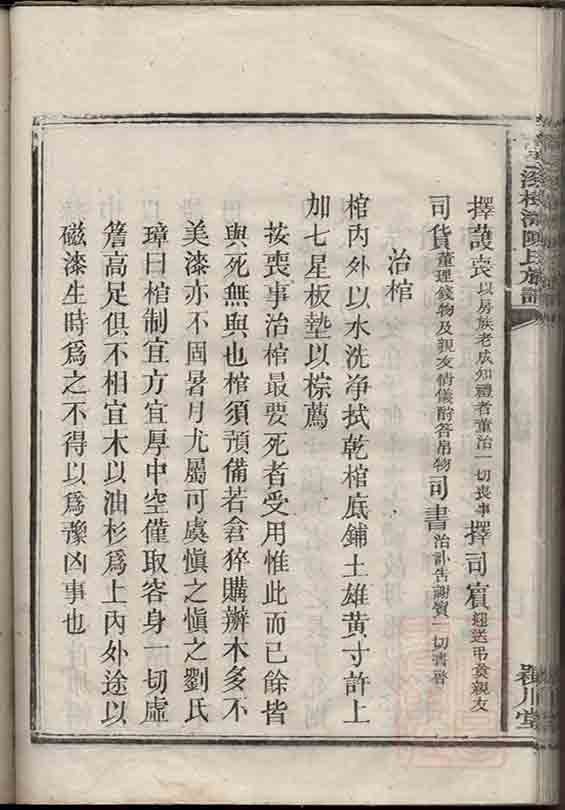 擇護喪以房族老成知禮者董治一切喪事擇司賓迎送弔奠親友
司貨董理錢物及親友情儀酧答帛物司書治訃告謝賓一切書啓
治棺
棺內外以水洗净拭乾棺底鋪土雄黃寸許上
加七星板墊以棕薦
按喪事治棺最要死者受用惟此而已餘皆
與死無與也棺須預備若倉猝購辦木多不
美漆亦不固暑月尤屬可虞愼之愼之劉氏
璋曰棺制宜方宜厚中空僅取容身一切虛
簷高足俱不相宜木以油杉爲上內外途以
磁漆生時爲之不得以爲豫凶事也
陳氏族譜
潁川堂